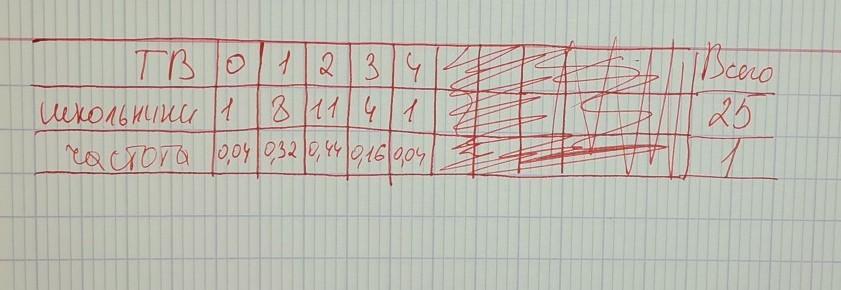 ТВ 0 1 2 3 4 Всего
школьники 1 8 11 4 1 25
частота 0,04 0,32 0,44 0,16 0,04 1